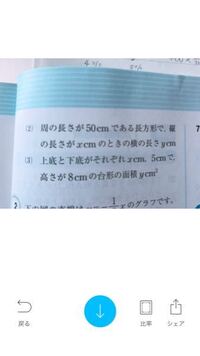 (2) 周の長さが50cmである長方形で、縦
の長さがxcmのときの横の長さycm
(3) 上底と下底がそれぞれxcm, 5cmで,
高さが8cmの台形の面積ycm²
のグラフです。
戻る
比率
シェア